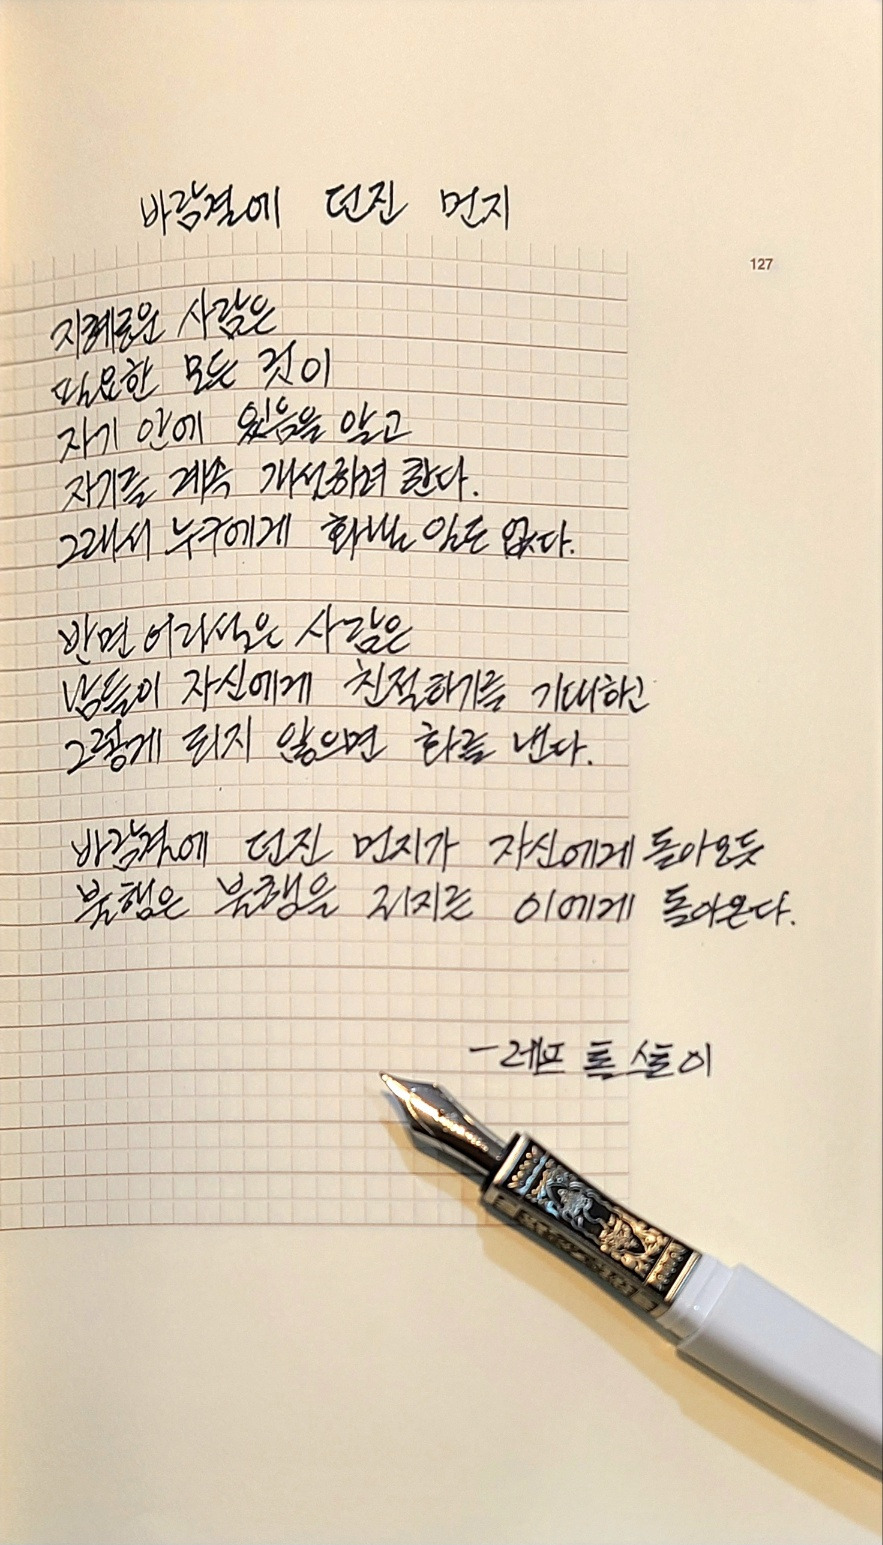 바람결에 던진 먼지
127
지혜로운 사람은
필요한 모든 것이
자기 안에 있음을 알고
자기를 계속 개선하려 한다.
그래서 누구에게 화낼 일도 없다.
반면 어리석은 사람은
남들이 자신에게 친절하기를 기대하고
그렇게 되지 않으면 화를 낸다.
바람결에 던진 먼지가 자신에게 돌아오듯
불행은 불행을 저지른 이에게 돌아온다.
- 레프 톨스토이